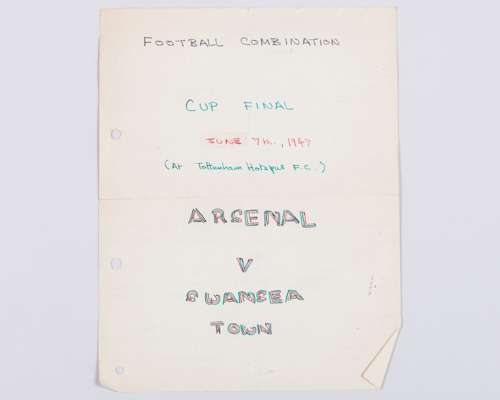 FOOTBALL COMBINATION
CUP FINAL
JUNE 7th., 1947
(At Tottenham Hotspur F.C.)
ARSENAL
V
SWANSEA
TOWN